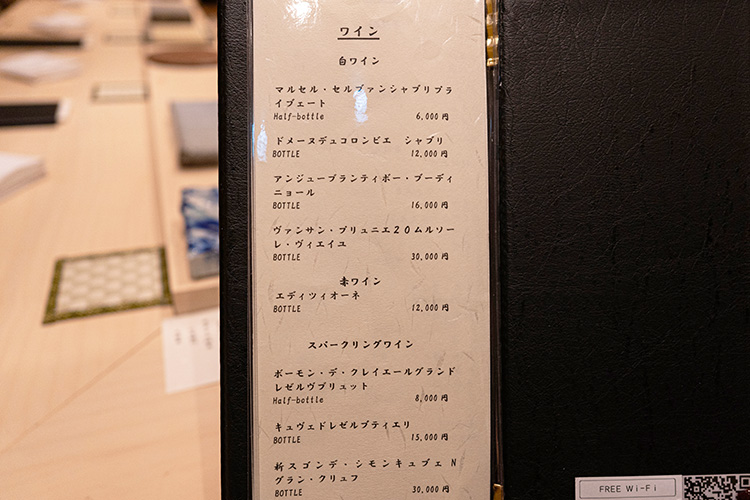 ワイン
白ワイン
マルセル・セルヴァンシャブリプラ
イヴェート
Half-bottle 6,000円
ドメーヌデュコロンビエ シャブリ
BOTTLE 12,000円
アンジューブランティボー・ブーディ
ニョール
BOTTLE 16,000円
ヴァンサン・プリュニエ20ムルソー
レ・ヴィエイユ
BOTTLE 30,000円
赤ワイン
エディツィオーネ
BOTTLE 12,000円
スパークリングワイン
ボーモン・デ・クレイエールグランド
レゼルヴブリュット
Half-bottle 8,000円
キュヴェドレゼルブティエリ
BOTTLE 15,000円
新スゴンデ・シモンキュブェ N
グラン・クリュフ
BOTTLE 30,000円
FREE Wi-Fi